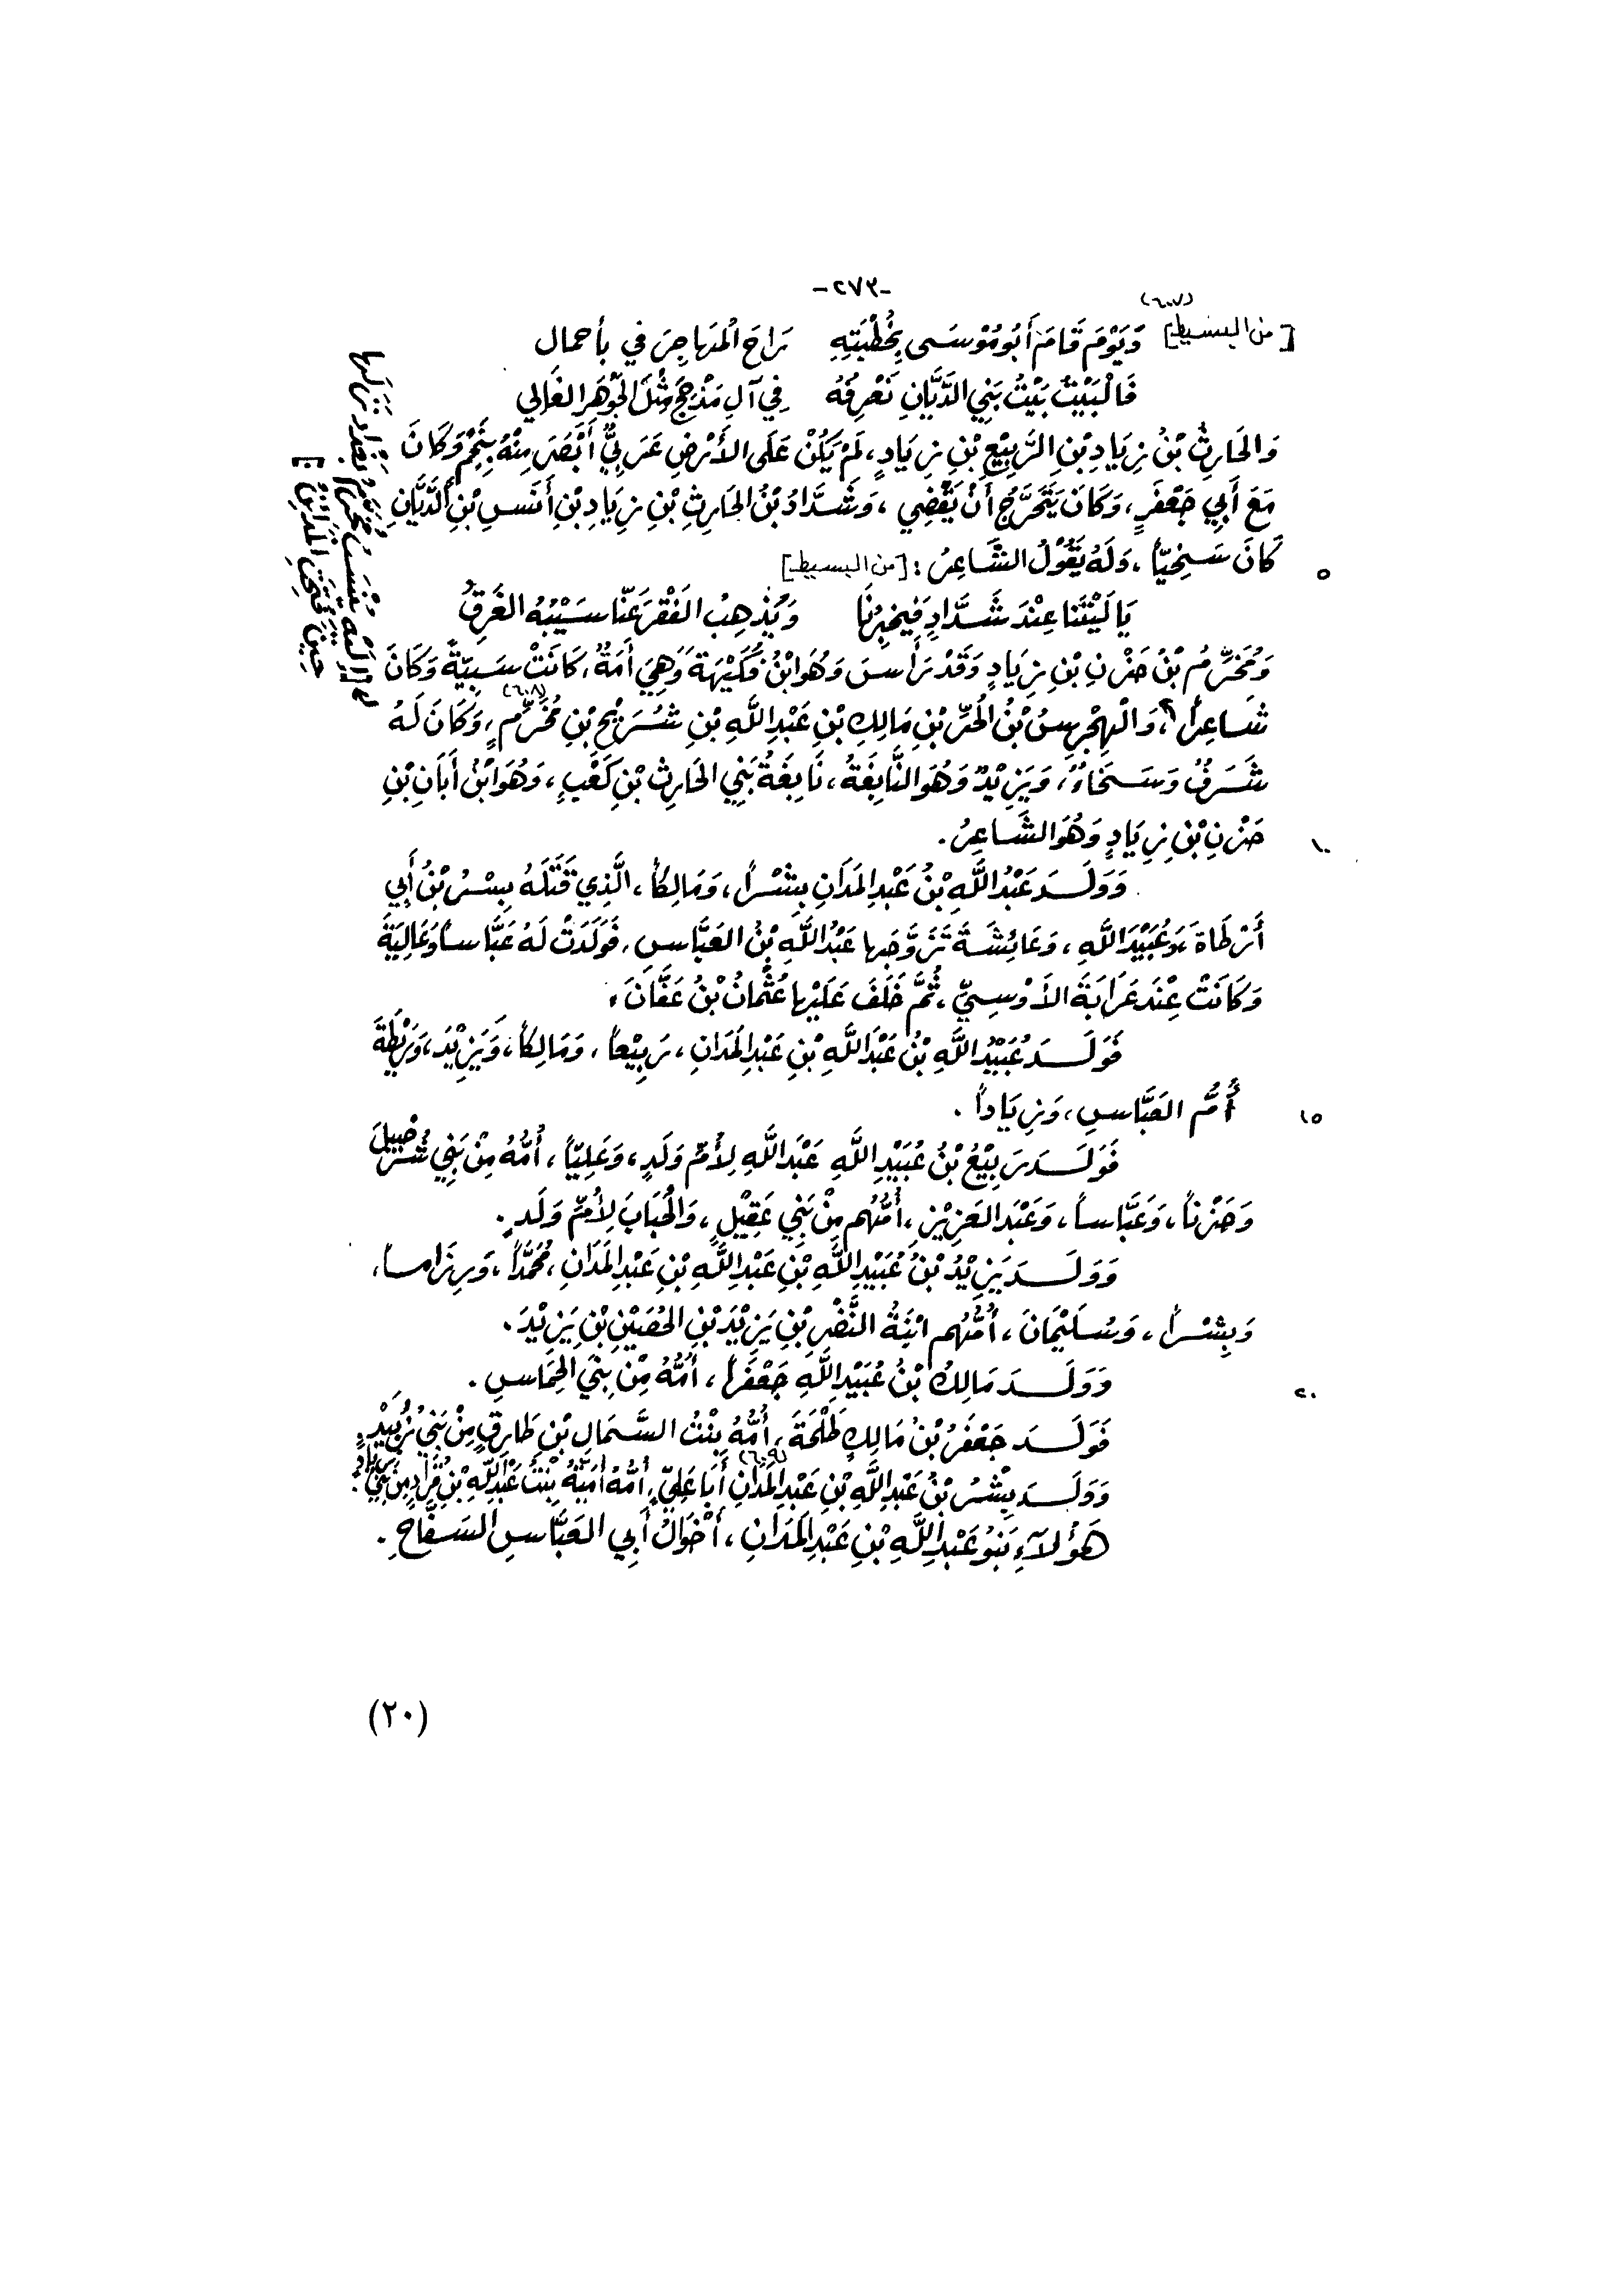 -٢٧٣-
(٦٠٧)
[من البسيط] وَيَوْمَ قَامَ أَبُو مُوْسَى بِخُطْبَتِهِ رَاحَ الْمُهَاجِرَ في بأجمال
فَالْبَيْتُ بَيْتُ بَنِي الدَّيَّانِ نَعْرِفُهُ فِي آلِ مَذْحِجَ مِثْلَ الجَوْهَرِ الغَالِي
وَالحَارِثُ بْنُ زِيَادِ بْنِ الرَّبِيْعِ بْنِ زِيَادٍ، لَمْ يَكُنْ عَلَى الأَرْضِ عَرَبِيٌّ أَبْصَرَ مِنْهُ بِنَجْمٍ وَكَانَ
مَعَ أَبِي جَعْفَرٍ، وَكَانَ يَتَحَرَّجُ أَنْ يَقْضِي، وَشَدَّادُ بْنُ الحَارِثِ بْنِ زِيَادِ بْنِ أَنَسِ بْنِ الدَّيَّانِ
كَانَ سَخِيّاً، وَلَهُ يَقُوْلُ الشَّاعِرُ : [من البسيط]
٥
يَا لَيْتَنَا عِنْدَ شَدَّادٍ فَيُخْبِرُنَا وَيُذْهِبُ الفَقْرَ عَنَّا سَيْبُهُ الغَرِقُ
وَمُخَرِّمُ بْنُ حَزْنِ بْنِ زِيَادٍ وَقَدْ رَأَسَ وَهُوَ ابْنُ فُكَيْهَةَ وَهِيَ أَمَةٌ، كَانَتْ سَبِيَّةً وَكَانَ
شَاعِراً، وَالْهِجْرِسُ بْنُ الحُرِّ بْنِ مَالِكِ بْنِ عَبْدِ اللَّهِ بْنِ شُرَيْحِ بْنِ مُخَرِّمٍ (٦٠٨)، وَكَانَ لَهُ
شَرَفٌ وَسَخَاءٌ، وَيَزِيْدُ وَهُوَ النَّابِغَةُ، نَابِغَةُ بَنِي الحَارِثِ بْنِ كَعْبٍ، وَهُوَ ابْنُ أَبَانِ بْنِ
حَزْنِ بْنِ زِيَادٍ وَهُوَ الشَّاعِرُ.
١٠
وَوَلَدَ عَبْدُ اللَّهِ بْنُ عَبْدِ المَدَانِ بِشْراً، وَمَالِكاً، الَّذِي قَتَلَهُ بِسْرُ بْنُ أَبِي
أَرْطَاةَ، وَعُبَيْدَ اللَّهِ، وَعَائِشَةَ تَزَوَّجَها عَبْدُ اللَّهِ بْنُ العَبَّاسِ، فَوَلَدَتْ لَهُ عَبَّاساً وَعَالِيَةَ
وَكَانَتْ عِنْدَ عَرَابَةَ الأَوْسِيِّ، ثُمَّ خَلَفَ عَلَيْها عُثْمانُ بْنُ عَفَّانَ.
فَوَلَدَ عُبَيْدُ اللَّهِ بْنُ عَبْدِ اللَّهِ بْنِ عَبْدِ المَدَانِ، رَبِيْعاً، وَمَالِكاً، وَيَزِيْدَ، وَرَيْطَةَ
أُمَّ العَبَّاسِ، وَزِيَاداً.
١٥
فَوَلَدَ رَبِيْعُ بْنُ عُبَيْدِ اللَّهِ عَبْدَ اللَّهِ لِأُمِّ وَلَدٍ، وَعَلِيّاً، أُمُّهُ مِنْ بَنِي شُرَحْبِيلَ
وَحَزْناً، وَعَبَّاساً، وَعَبْدَ العَزِيْزِ، أُمُّهُم مِنْ بَنِي عَقِيْلٍ، وَالْحُبَابَ لِأُمِّ وَلَدٍ.
وَوَلَدَ يَزِيْدُ بْنُ عُبَيْدِ اللَّهِ بْنِ عَبْدِ اللَّهِ بْنِ عَبْدِ المَدَانِ، مُحَمَّداً، وَرِزَاماً،
وَبِشْراً، وَسُلَيْمَانَ، أُمُّهُم ابْنَةُ النَّضْرِ بْنِ يَزِيْدَ بْنِ الحُصَيْنِ بْنِ يَزِيْدَ.
وَوَلَدَ مَالِكُ بْنُ عُبَيْدِ اللَّهِ جَعْفَراً، أُمُّهُ مِنْ بَنِي الحِمَاسِ.
٢٠
فَوَلَدَ جَعْفَرُ بْنُ مَالِكٍ طَلْحَةَ، أُمُّهُ بِنْتُ السَّمَالِ بْنِ طَارِقٍ مِنْ بَنِي زُبَيْدٍ.
وَوَلَدَ بِشْرُ بْنُ عَبْدِ اللَّهِ بْنِ عَبْدِ المَدَانِ (٦٠٩) أَبَا عَلِيٍّ، أُمُّهُ أُمَيَّةُ بِنْتُ عَبْدِ اللَّهِ بْنِ قُرَادٍ مِنْ بَنِي زِيَادٍ.
هَؤُلَاءِ بَنُو عَبْدِ اللَّهِ بْنِ عَبْدِ المَدَانِ، أَخْوَالُ أَبِي العَبَّاسِ السَّفَّاحِ.
(٢٠)